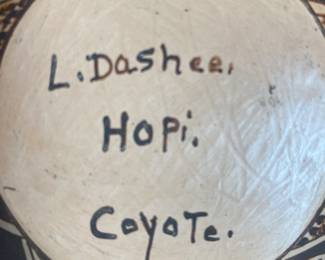 L. Dashee.
Hopi.
Coyote.